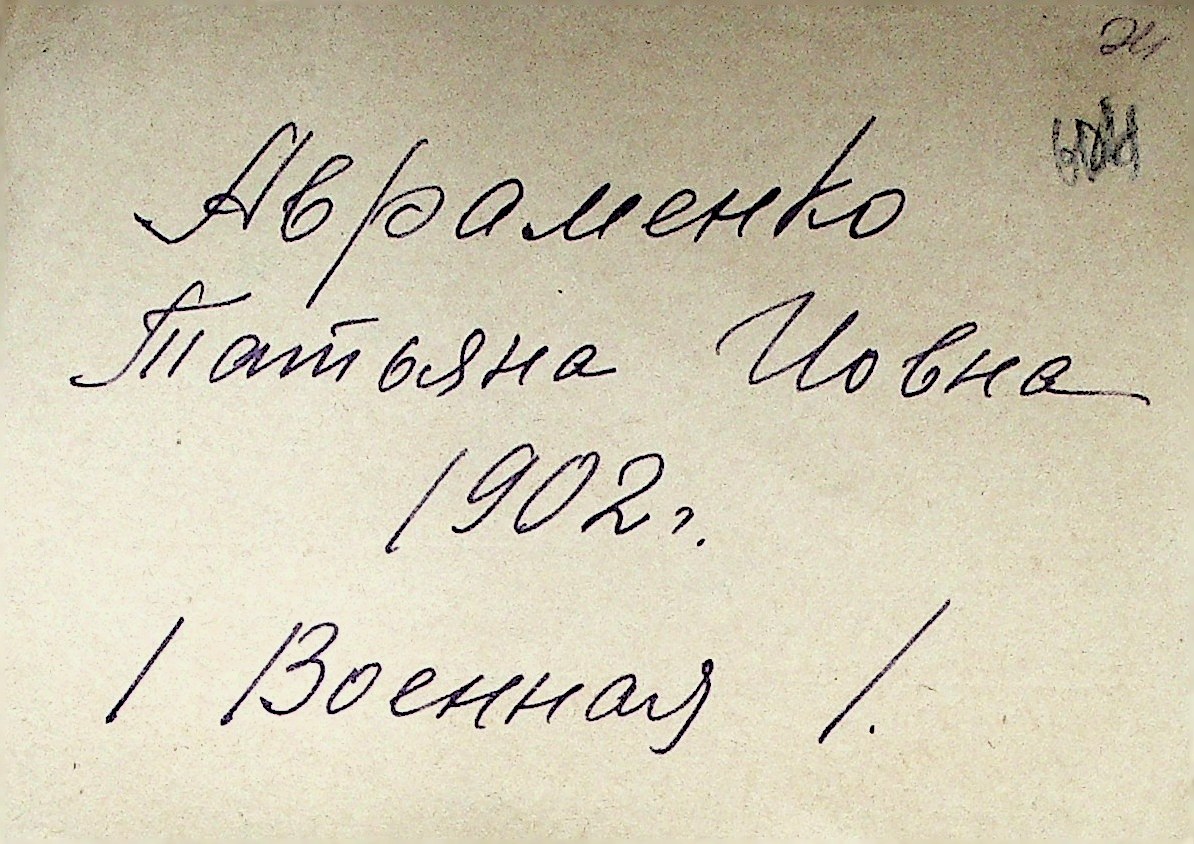 Авраменко
Татьяна Иовна
1902г.
/ Военная /.